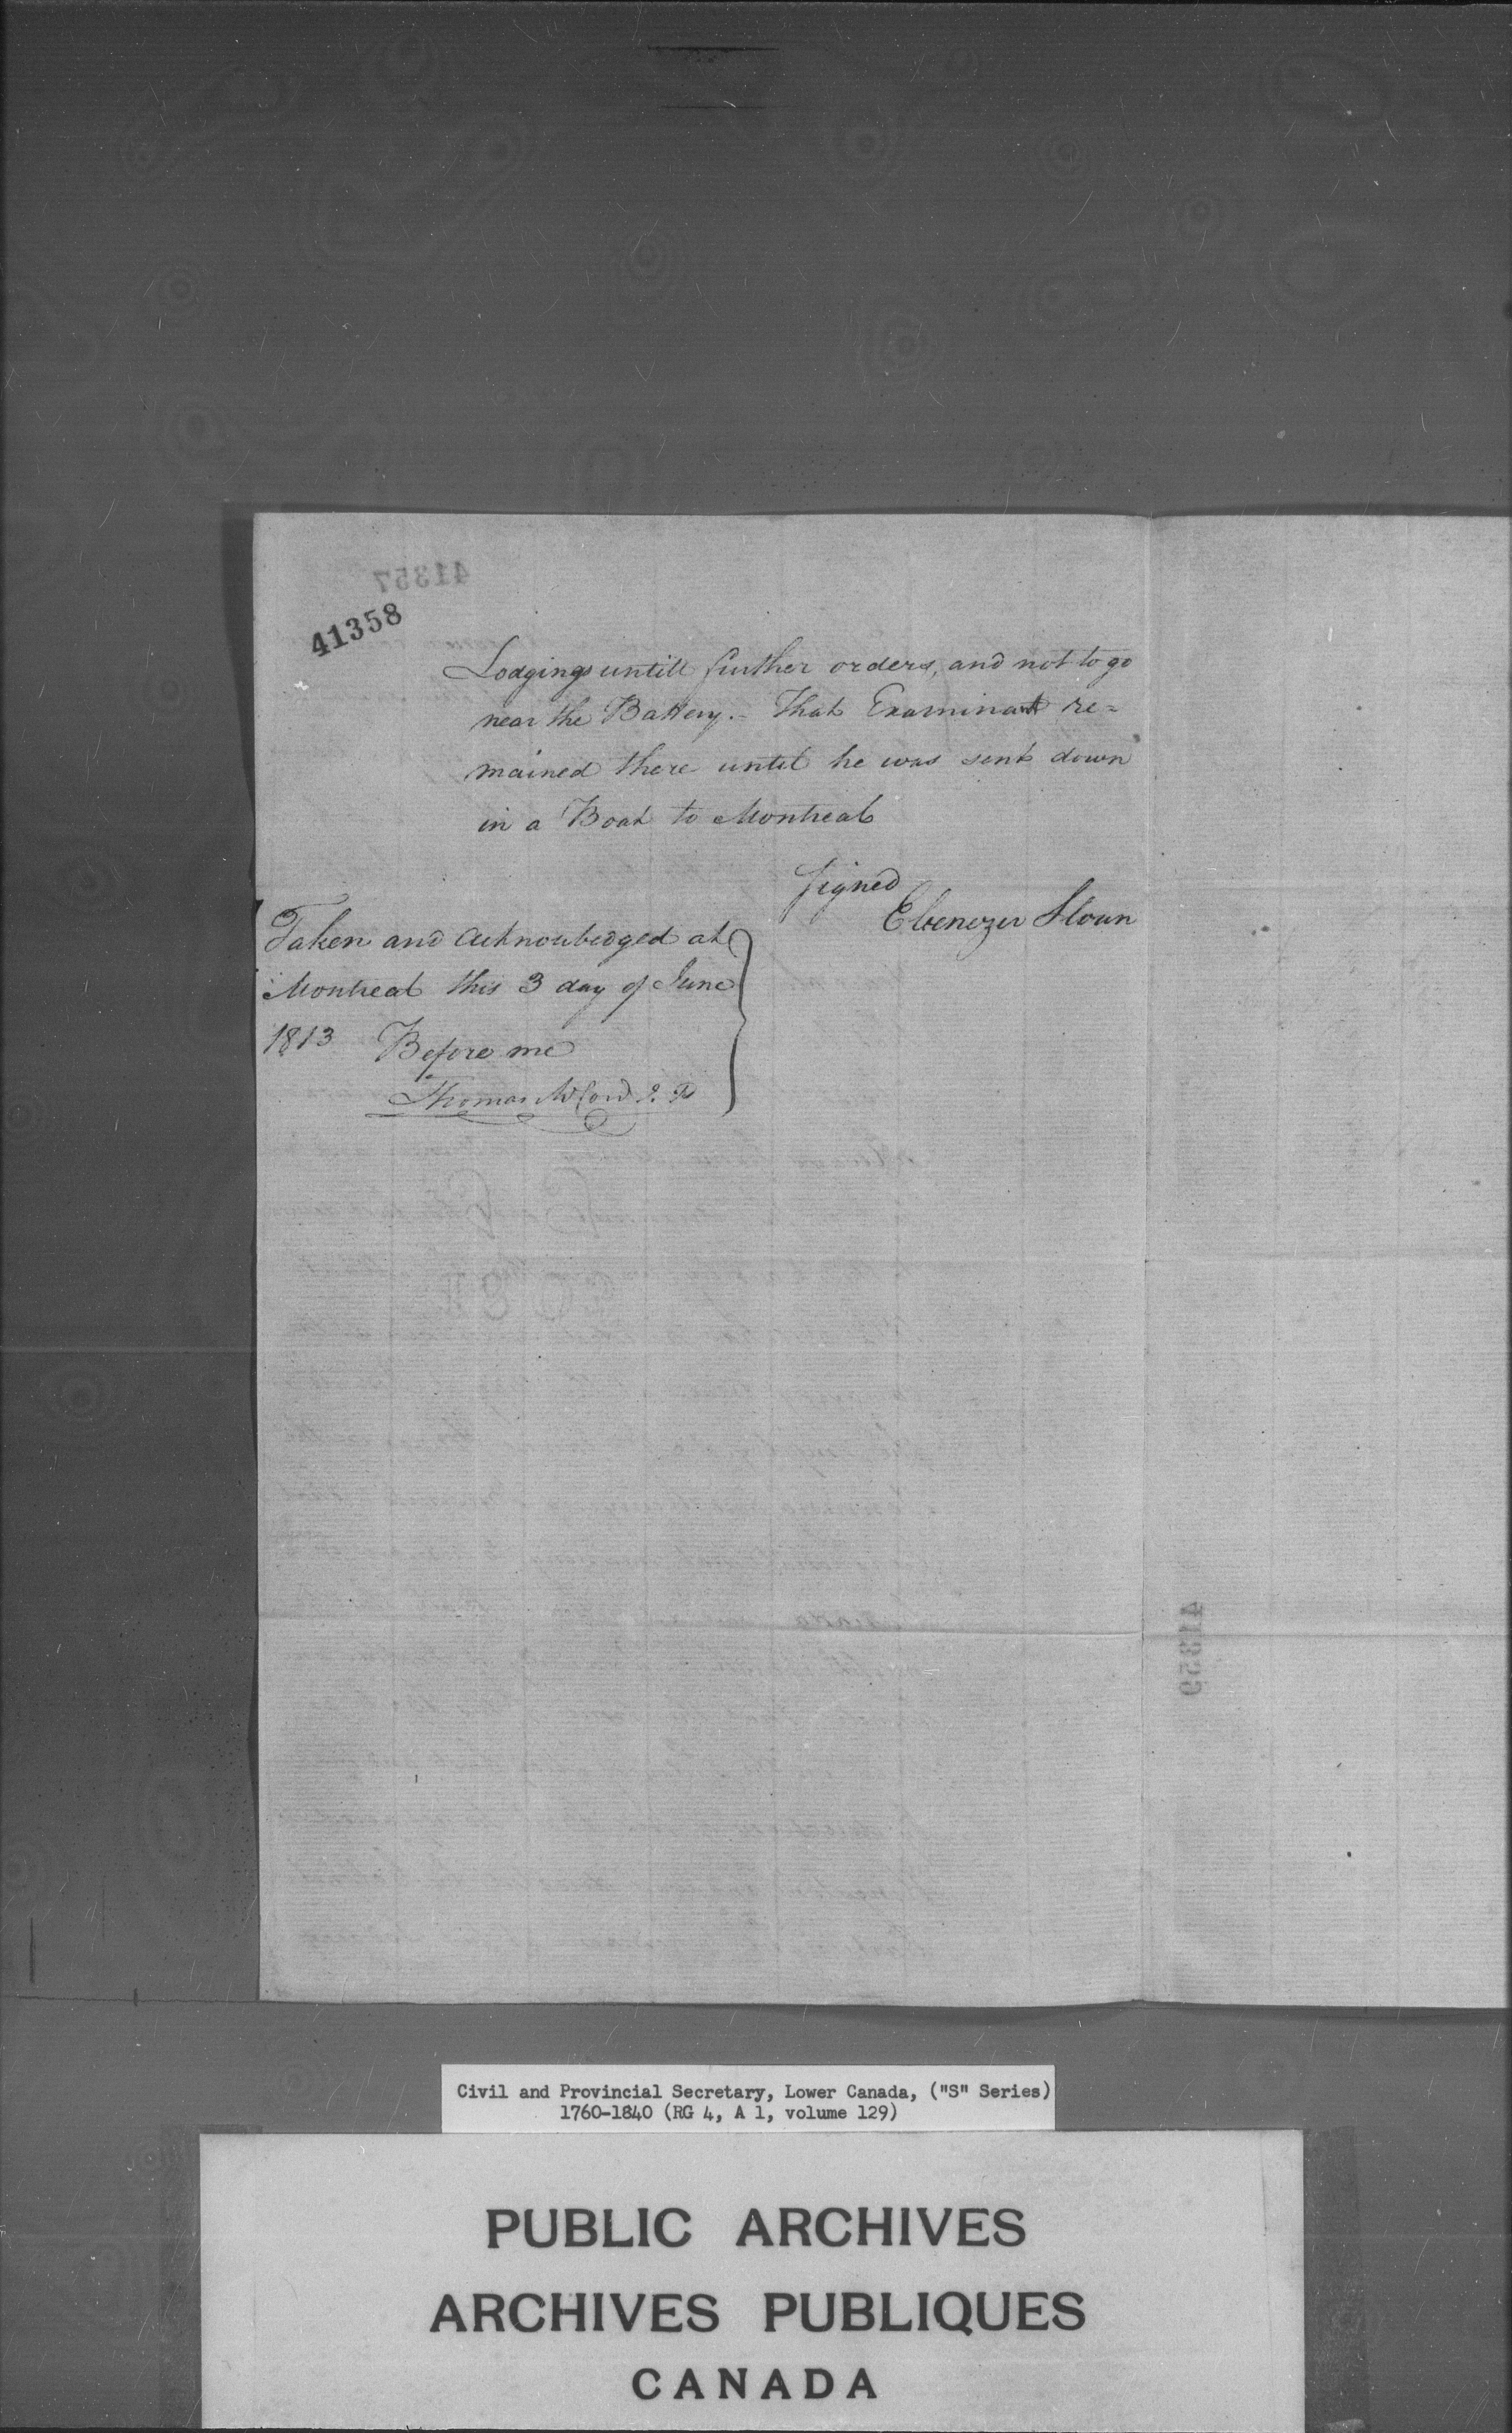 41357
41358
Lodgings untill further orders, and not to go
near the Battery.- That Examinant re=
mained there until he was sent down
in a Boat to Montreal
signed
Ebenezer Sloan
Taken and acknowledged at
Montreal this 3 day of June
1813 Before me
Thomas McCord J. P
41359
Civil and Provincial Secretary, Lower Canada, ("S" Series)
1760-1840 (RG 4, A 1, volume 129)
PUBLIC ARCHIVES
ARCHIVES PUBLIQUES
CANADA